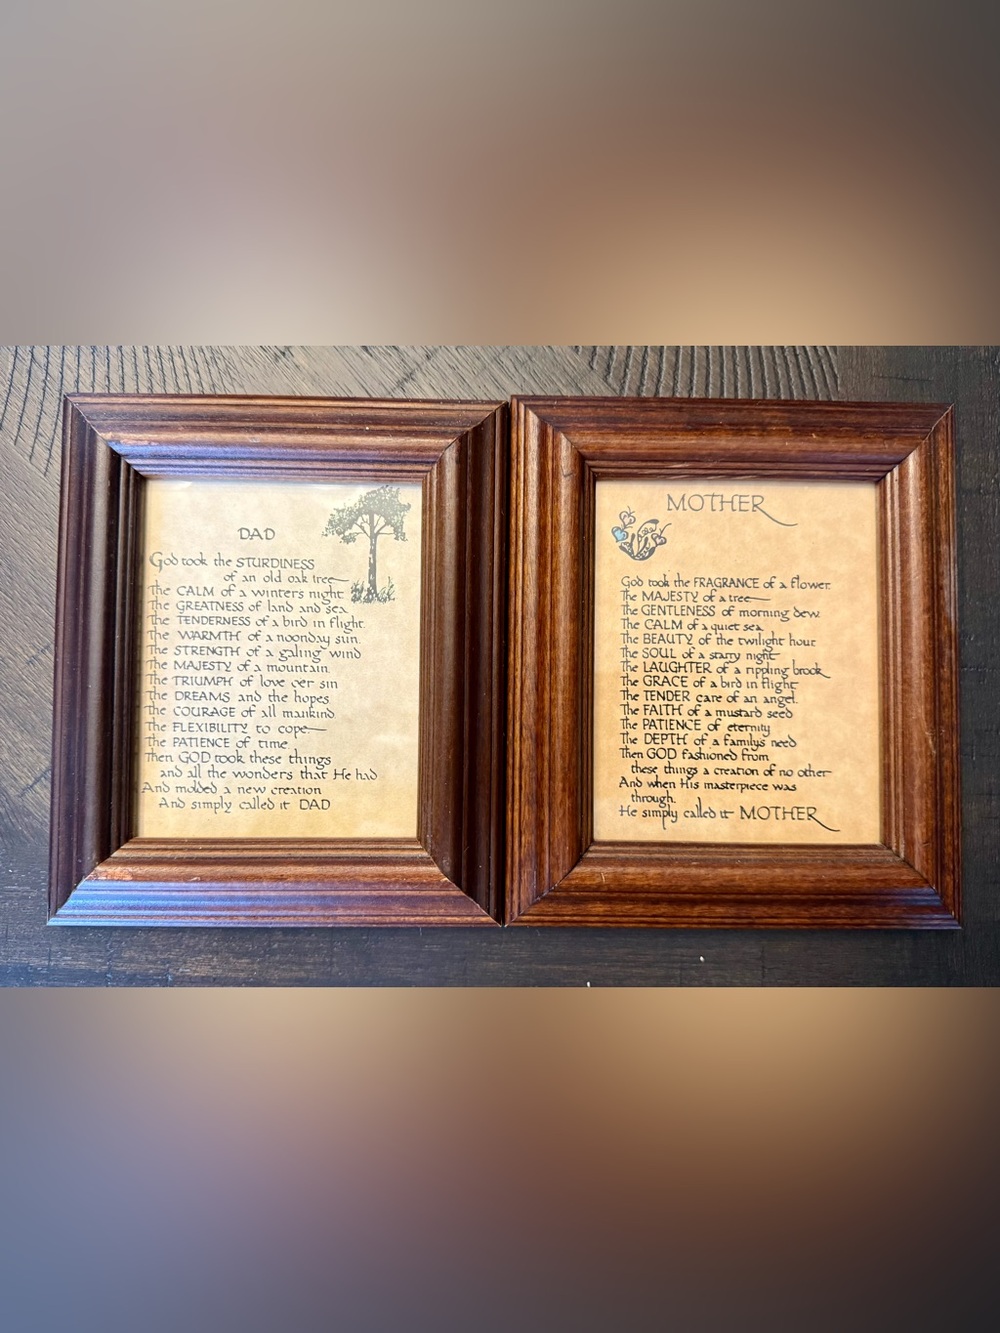 DAD
God took the STURDINESS
of an old oak tree
The CALM of a winters night
The GREATNESS of land and sea
The TENDERNESS of a bird in flight.
The WARMTH of a noonday sun.
The STRENGTH of a galing wind
The MAJESTY of a mountain.
The TRIUMPH of love oer sin
The DREAMS and the hopes
The COURAGE of all mankind
The FLEXIBILITY to cope
The PATIENCE of time
Then GOD took these things
and all the wonders that He had
And molded a new creation
And simply called it DAD
MOTHER
God took the FRAGRANCE of a flower.
The MAJESTY of a tree
The GENTLENESS of morning dew.
The CALM of a quiet sea.
The BEAUTY of the twilight hour
The SOUL of a starry night
The LAUGHTER of a rippling brook
The GRACE of a bird in flight
The TENDER care of an angel.
The FAITH of a mustard seed
The PATIENCE of eternity
The DEPTH of a familys need
Then GOD fashioned from
these things a creation of no other
And when His masterpiece was
through.
He simply called it MOTHER